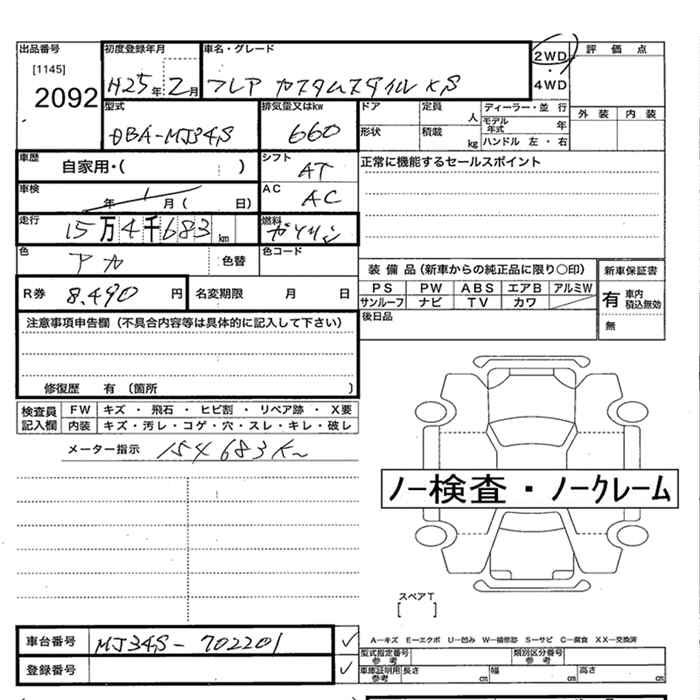 出品番号 初度登録年月 車名・グレード 2WD 評価点
[1145] 2092 H25年 2月 フレア カスタムスタイル XS ・ 4WD
型式 排気量又はkw ドア 定員 人 ディーラー・並行 外装 内装
DBA-MJ34S 660 形状 積載 kg モデル年式 年 ハンドル 左・右
車歴 自家用・( ) シフト AT 正常に機能するセールスポイント
車検 年 月( 日) AC AC
走行 15万4千683 km 燃料 ガソリン
色 アカ 色替 色コード
装備品(新車からの純正品に限り○印) 新車保証書
R券 8,490 円 名変期限 月 日 PS PW ABS エアB アルミW 有 車内積込無効
サンルーフ ナビ TV カワ
注意事項申告欄(不具合内容等は具体的に記入して下さい) 後日品 無
修復歴 有(箇所 )
検査員記入欄 FW キズ・飛石・ヒビ割・リペア跡・X要
内装 キズ・汚レ・コゲ・穴・スレ・キレ・破レ
メーター指示 154683K
ノー検査・ノークレーム
スペアT
[ ]
車台番号 MJ34S-702201 ✓ A―キズ E―エクボ U―凹み W―補修跡 S―サビ C―腐食 XX―交換済
型式指定番号 参考 類別区分番号 参考
登録番号 ✓ 車庫証明用参考 長さ cm 幅 cm 高さ cm